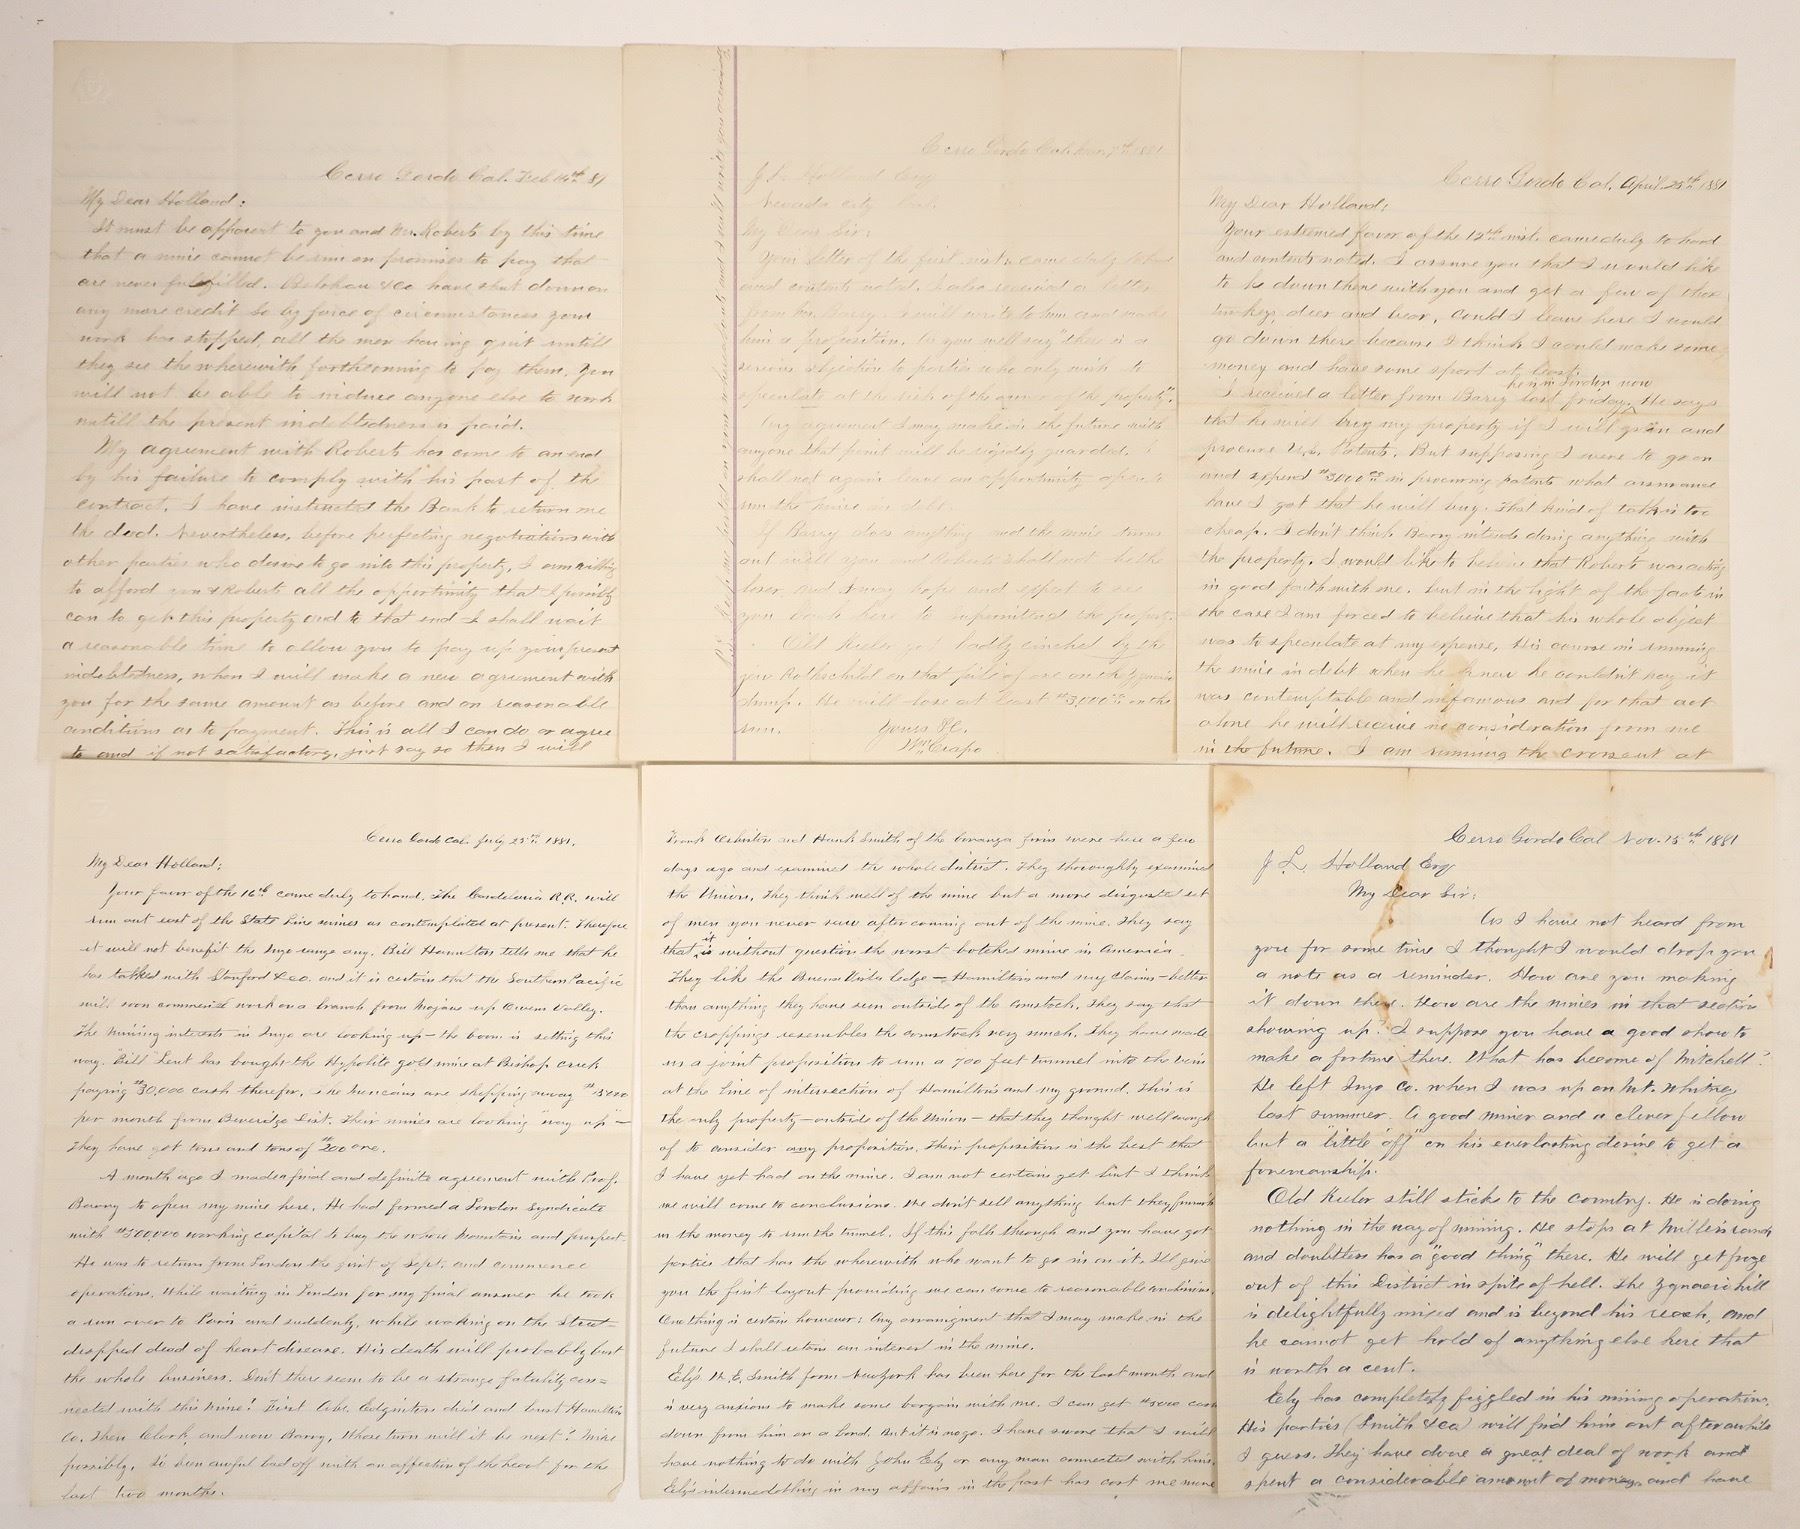 Cerro Gordo Cal. Feb 14th 81
My Dear Holland:
It must be apparent to you and Mr. Roberts by this time
that a mine cannot be run on promises to pay that
are never fulfilled. Belshaw &Co have shut down on
any more credit so by force of circumstances your
work has stopped, all the men having quit untill
they see the wherewith forthcoming to pay them. You
will not be able to induce anyone else to work
untill the present indebtedness is paid.
My agrument with Roberts has come to an end
by his failure to comply with his part of the
contract. I have instructed the Bank to return me
the deed. Nevertheless, before perfecting negotiations with
other parties who desire to go into this property, I am willing
to afford you & Roberts all the opportunity that I possibly
can to get this property and to that end I shall wait
a reasonable time to allow you to pay up your present
indebtedness, when I will make a new agrument with
you for the same amount as before and on reasonable
conditions as to payment. This is all I can do or agree
to and if not satisfactory, just say so then I will
Cerro Gordo Cal. 7th 1881
J. L. Holland Esq
Nevada City Cal.
My Dear Sir:
Your letter of the first inst. came duly to hand
and contents noted. I also received a letter
from Mr. Barry. I will write to him and make
him a proposition. As you well say "there is a
serious objection to parties who only wish to
speculate at the risk of the owner of the property".
Any agrument I may make in the future with
anyone that point will be rigidly guarded. I
shall not again leave an opportunity open to
run the mine in debt.
If Barry does anything and the mine turns
out well you and Roberts shall not be the
loser, and I may hope and expect to see
you back here to superintend the property.
Old Keeler got badly cinched by the
jew Rothschild on that pile of ore on the Ygnacio
dump. He will lose at least $3,000 on the
run. Yours &C.
Wm Crapo
Cerro Gordo Cal. April 25th 1881
My Dear Holland:
Your esteemed favor of the 12th inst. came duly to hand
and contents noted. I assure you that I would like
to be down there with you and get a few of those
turkey, deer and bear, Could I leave here I would
go down there because I think I could make some
money and have some sport at least.
he is in London now
I received a letter from Barry last friday, He says
that he will buy my property if I will go on and
procure U.S. Patents. But supposing I were to go on
and expend $3000 in procuring patents what assurance
have I got that he will buy. That kind of talk is too
cheap. I don't think Barry intends doing anything with
the property. I would like to believe that Roberts was acting
in good faith with me. but in the light of the facts in
the case I am forced to believe that his whole object
was to speculate at my expense. His course in running
the mine in debt when he knew he couldn't pay it
was contemptable and infamous and for that act
alone he will receive no consideration from me
in the future. I am running the crosscut at
Cerro Gordo Cal. July 25th 1881.
My Dear Holland:
Your favor of the 16th came duly to hand. The Candelaria R.R. will
run out east of the State Line mines as contemplated at present. Therefore
it will not benefit the Inyo range any. Bill Hamilton tells me that he
has talked with Stanford &co. and it is certain that the Southern Pacific
will soon commence work on a branch from Mojave up Owens Valley.
The mining interests in Inyo are looking up — the boom is setting this
way. Bill Lent has bought the Hypolite gold mine at Bishop creek
paying $30,000 cash therefor. The Mexicans are shipping away $15000
per month from Beveridge Dist. Their mines are looking "way up" —
They have got tons and tons of $200 ore.
A month ago I made a final and definite agreement with Prof.
Barry to open my mine here. He had formed a London Syndicate
with $500,000 working capital to buy the whole mountain and prospect.
He was to return from London the first of Sept. and commence
operations. While waiting in London for my final answer he took
a run over to Paris and suddenly, while walking on the street
dropped dead of heart disease. His death will probably bust
the whole business. Don't there seem to be a strange fatality con=
nected with this mine? First Abe. Edginton died and bust Hamilton
Co. Then Clark, and now Barry, Whose turn will it be next? Mine
possibly. I've been awful bad off with an affection of the heart for the
last two months.
Frank Osbiston and Hank Smith of the bonanza firm were here a few
days ago and examined the whole district. They thoroughly examined
the Union. They think well of the mine but a more disgusted set
of men you never saw after coming out of the mine. They say
that it is without question the worst botched mine in America.
They like the Buena Vista ledge — Hamiltins and my claims — better
than anything they have seen outside of the Comstock. They say that
the croppings resembles the comstock very much. They have made
us a joint proposition to run a 700 feet tunnel into the vein
at the line of intersection of Hamiltins and my ground. This is
the only property — outside of the Union — that they thought well enough
of to consider any proposition. Their proposition is the best that
I have yet had on the mine. I am not certain yet but I think
we will come to conclusions. We don't sell anything but they furnish
us the money to run the tunnel. If this falls through and you have got
parties that has the wherewith who want to go in on it, I'll give
you the first layout providing we can come to reasonable conditions.
One thing is certain however: Any arrangment that I may make in the
future I shall retain an interest in the mine.
Ely's N. E. Smith from New York has been here for the last month and
is very anxious to make some bargain with me. I can get $5000 cash
down from him on a bond. But it is no go. I have swore that I will
have nothing to do with John Ely or any man connected with him.
Ely's intermeddling in my affairs in the past has cost me more
Cerro Gordo Cal Nov. 15th 1881
J. L. Holland Esq
My Dear Sir:
As I have not heard from
you for some time I thought I would drop you
a note as a reminder. How are you making
it down there. How are the mines in that section
showing up? I suppose you have a good show to
make a fortune there. What has become of Mitchell?
He left Inyo Co. when I was up on Mt. Whitney
last summer. A good miner and a clever fellow
but a "little off" on his everlasting desire to get a
foremanship.
Old Keeler still sticks to the country. He is doing
nothing in the way of mining. He stops at Miller's ranch
and doubtless has a "good thing" there. He will get froze
out of this District in spite of hell. The Ygnacio hill
is delightfully mixed and is beyond his reach, and
he cannot get hold of anything else here that
is worth a cent.
Ely has completely fizzled in his mining operation.
His parties (Smith &co) will find him out after awhile
I guess. They have done a great deal of work and
spent a considerable amount of money, and have